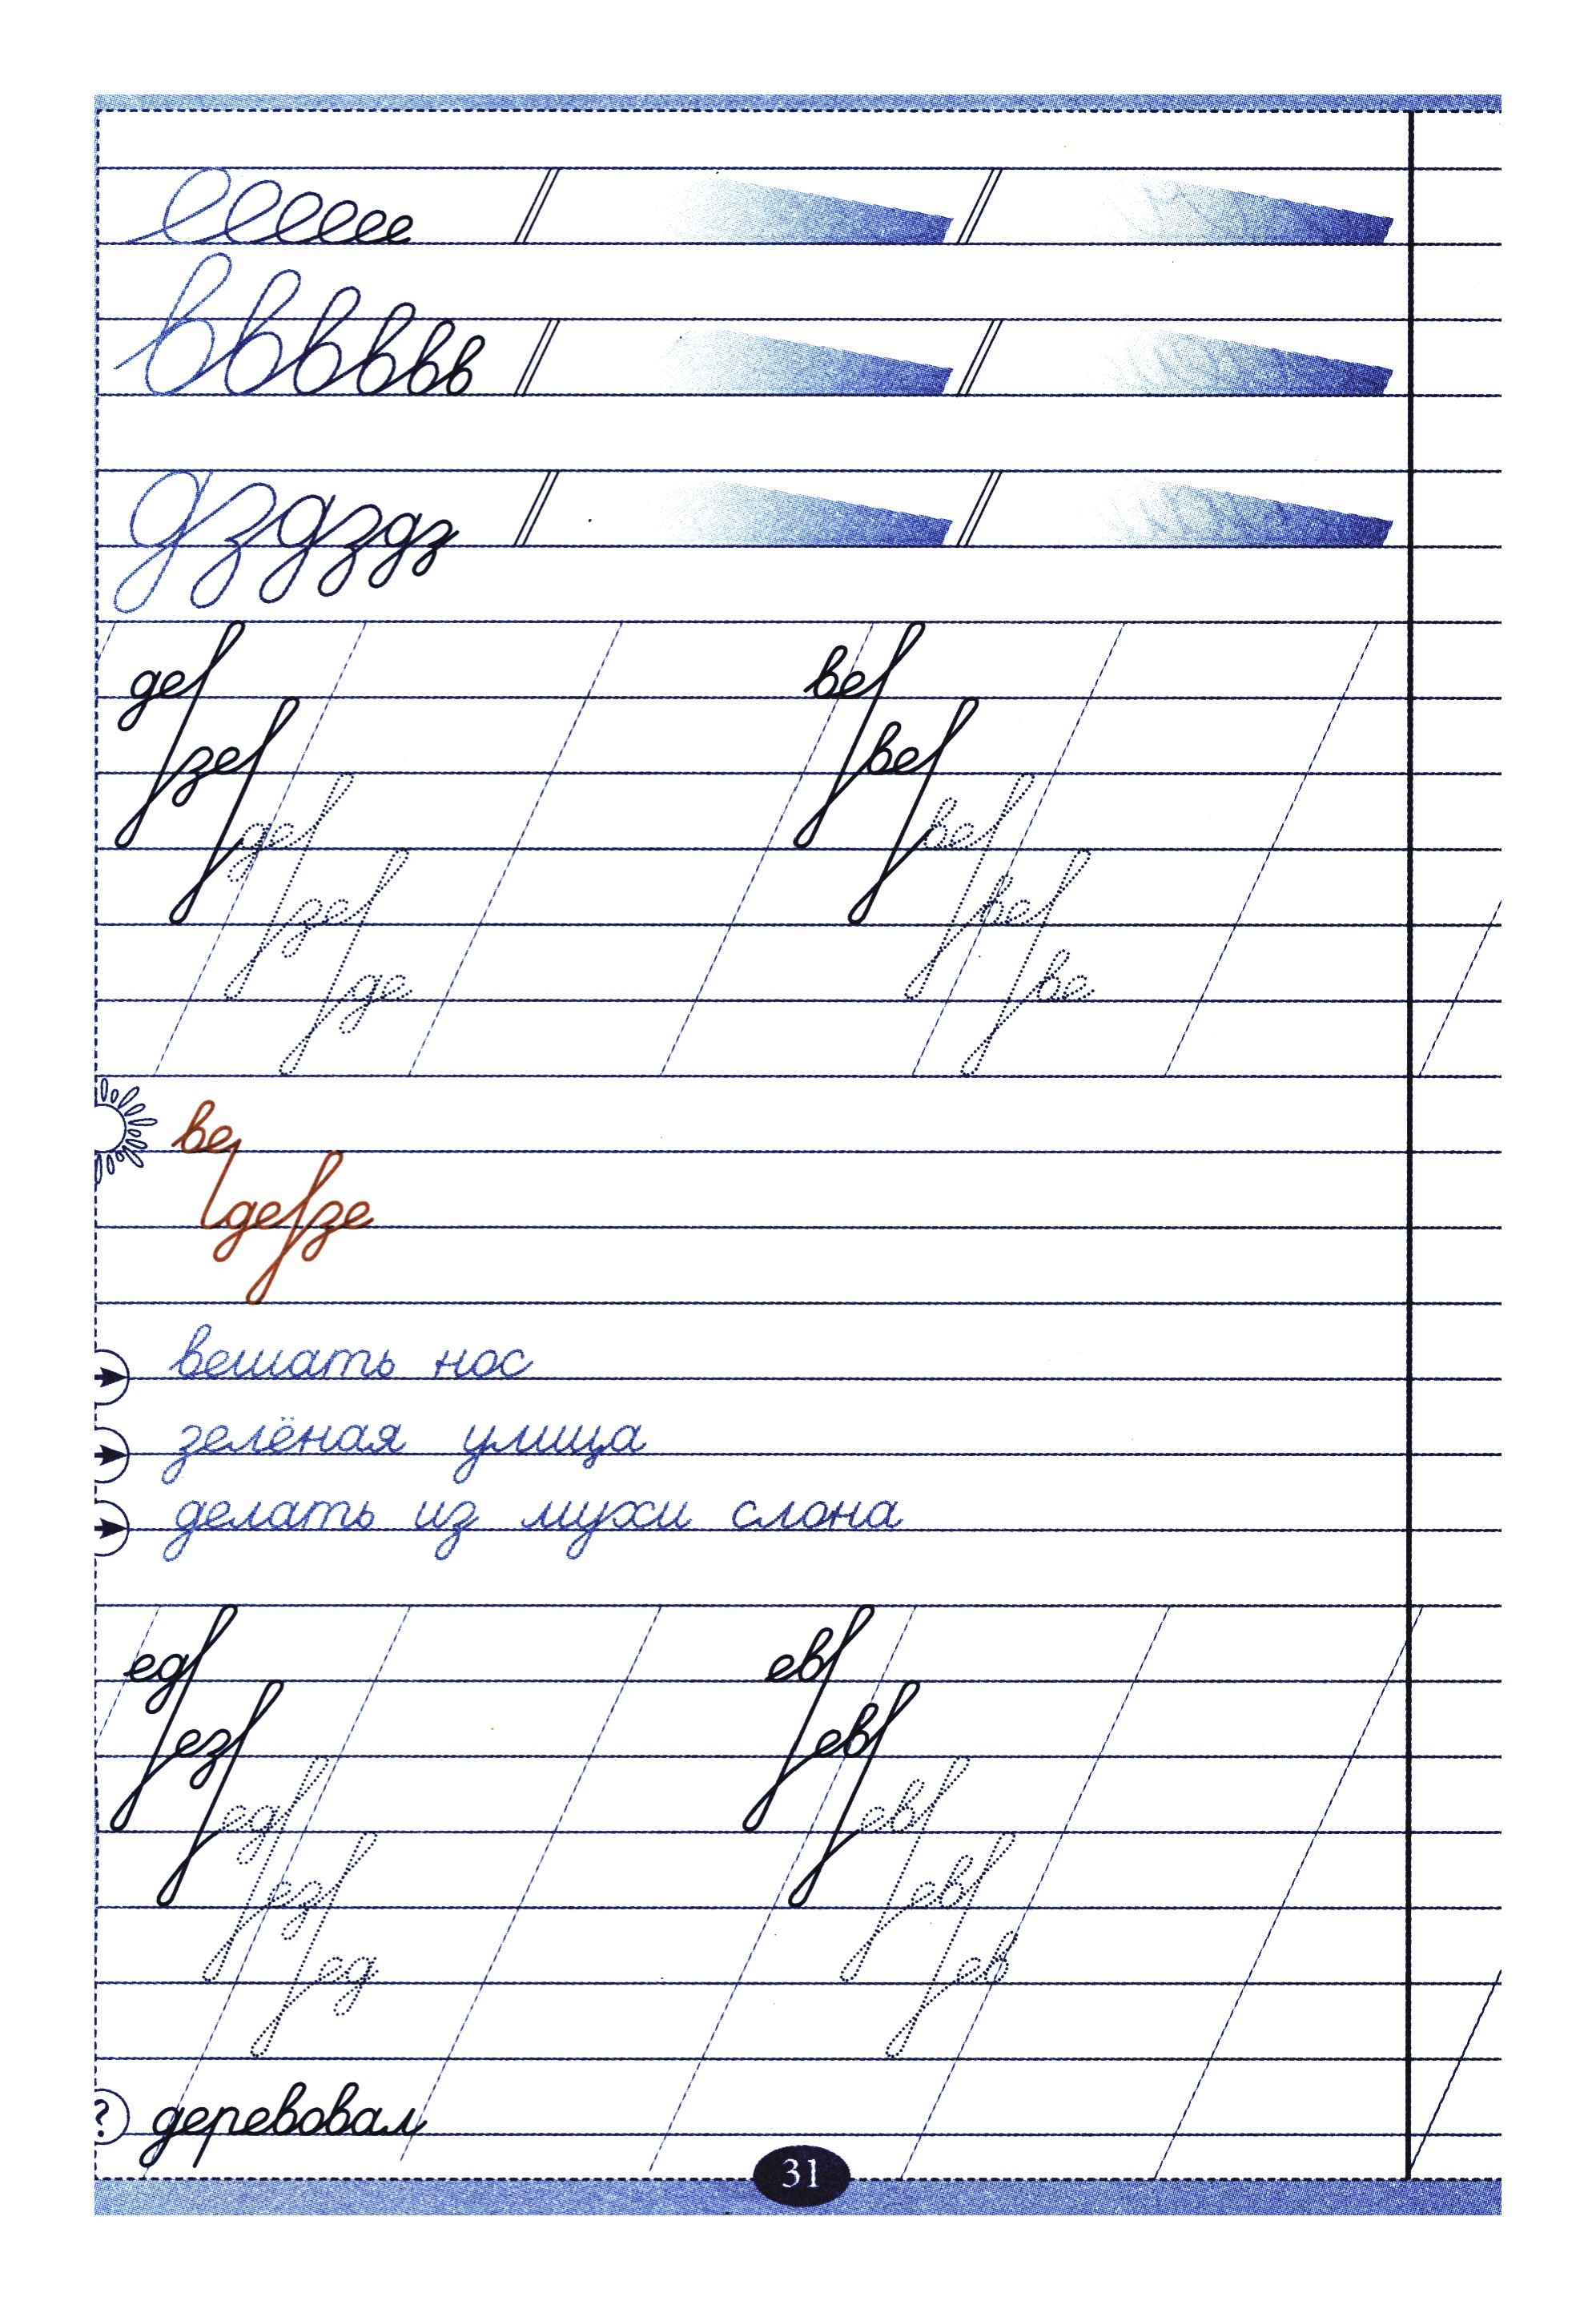 еееееее
вввввв
дздздз
де ве
зе ве
де ве
зе ве
де ве
ве
дезе
вешать нос
зелёная улица
делать из мухи слона
ед ев
ез ев
ед ев
ез ев
ед ев
? деревовал
31